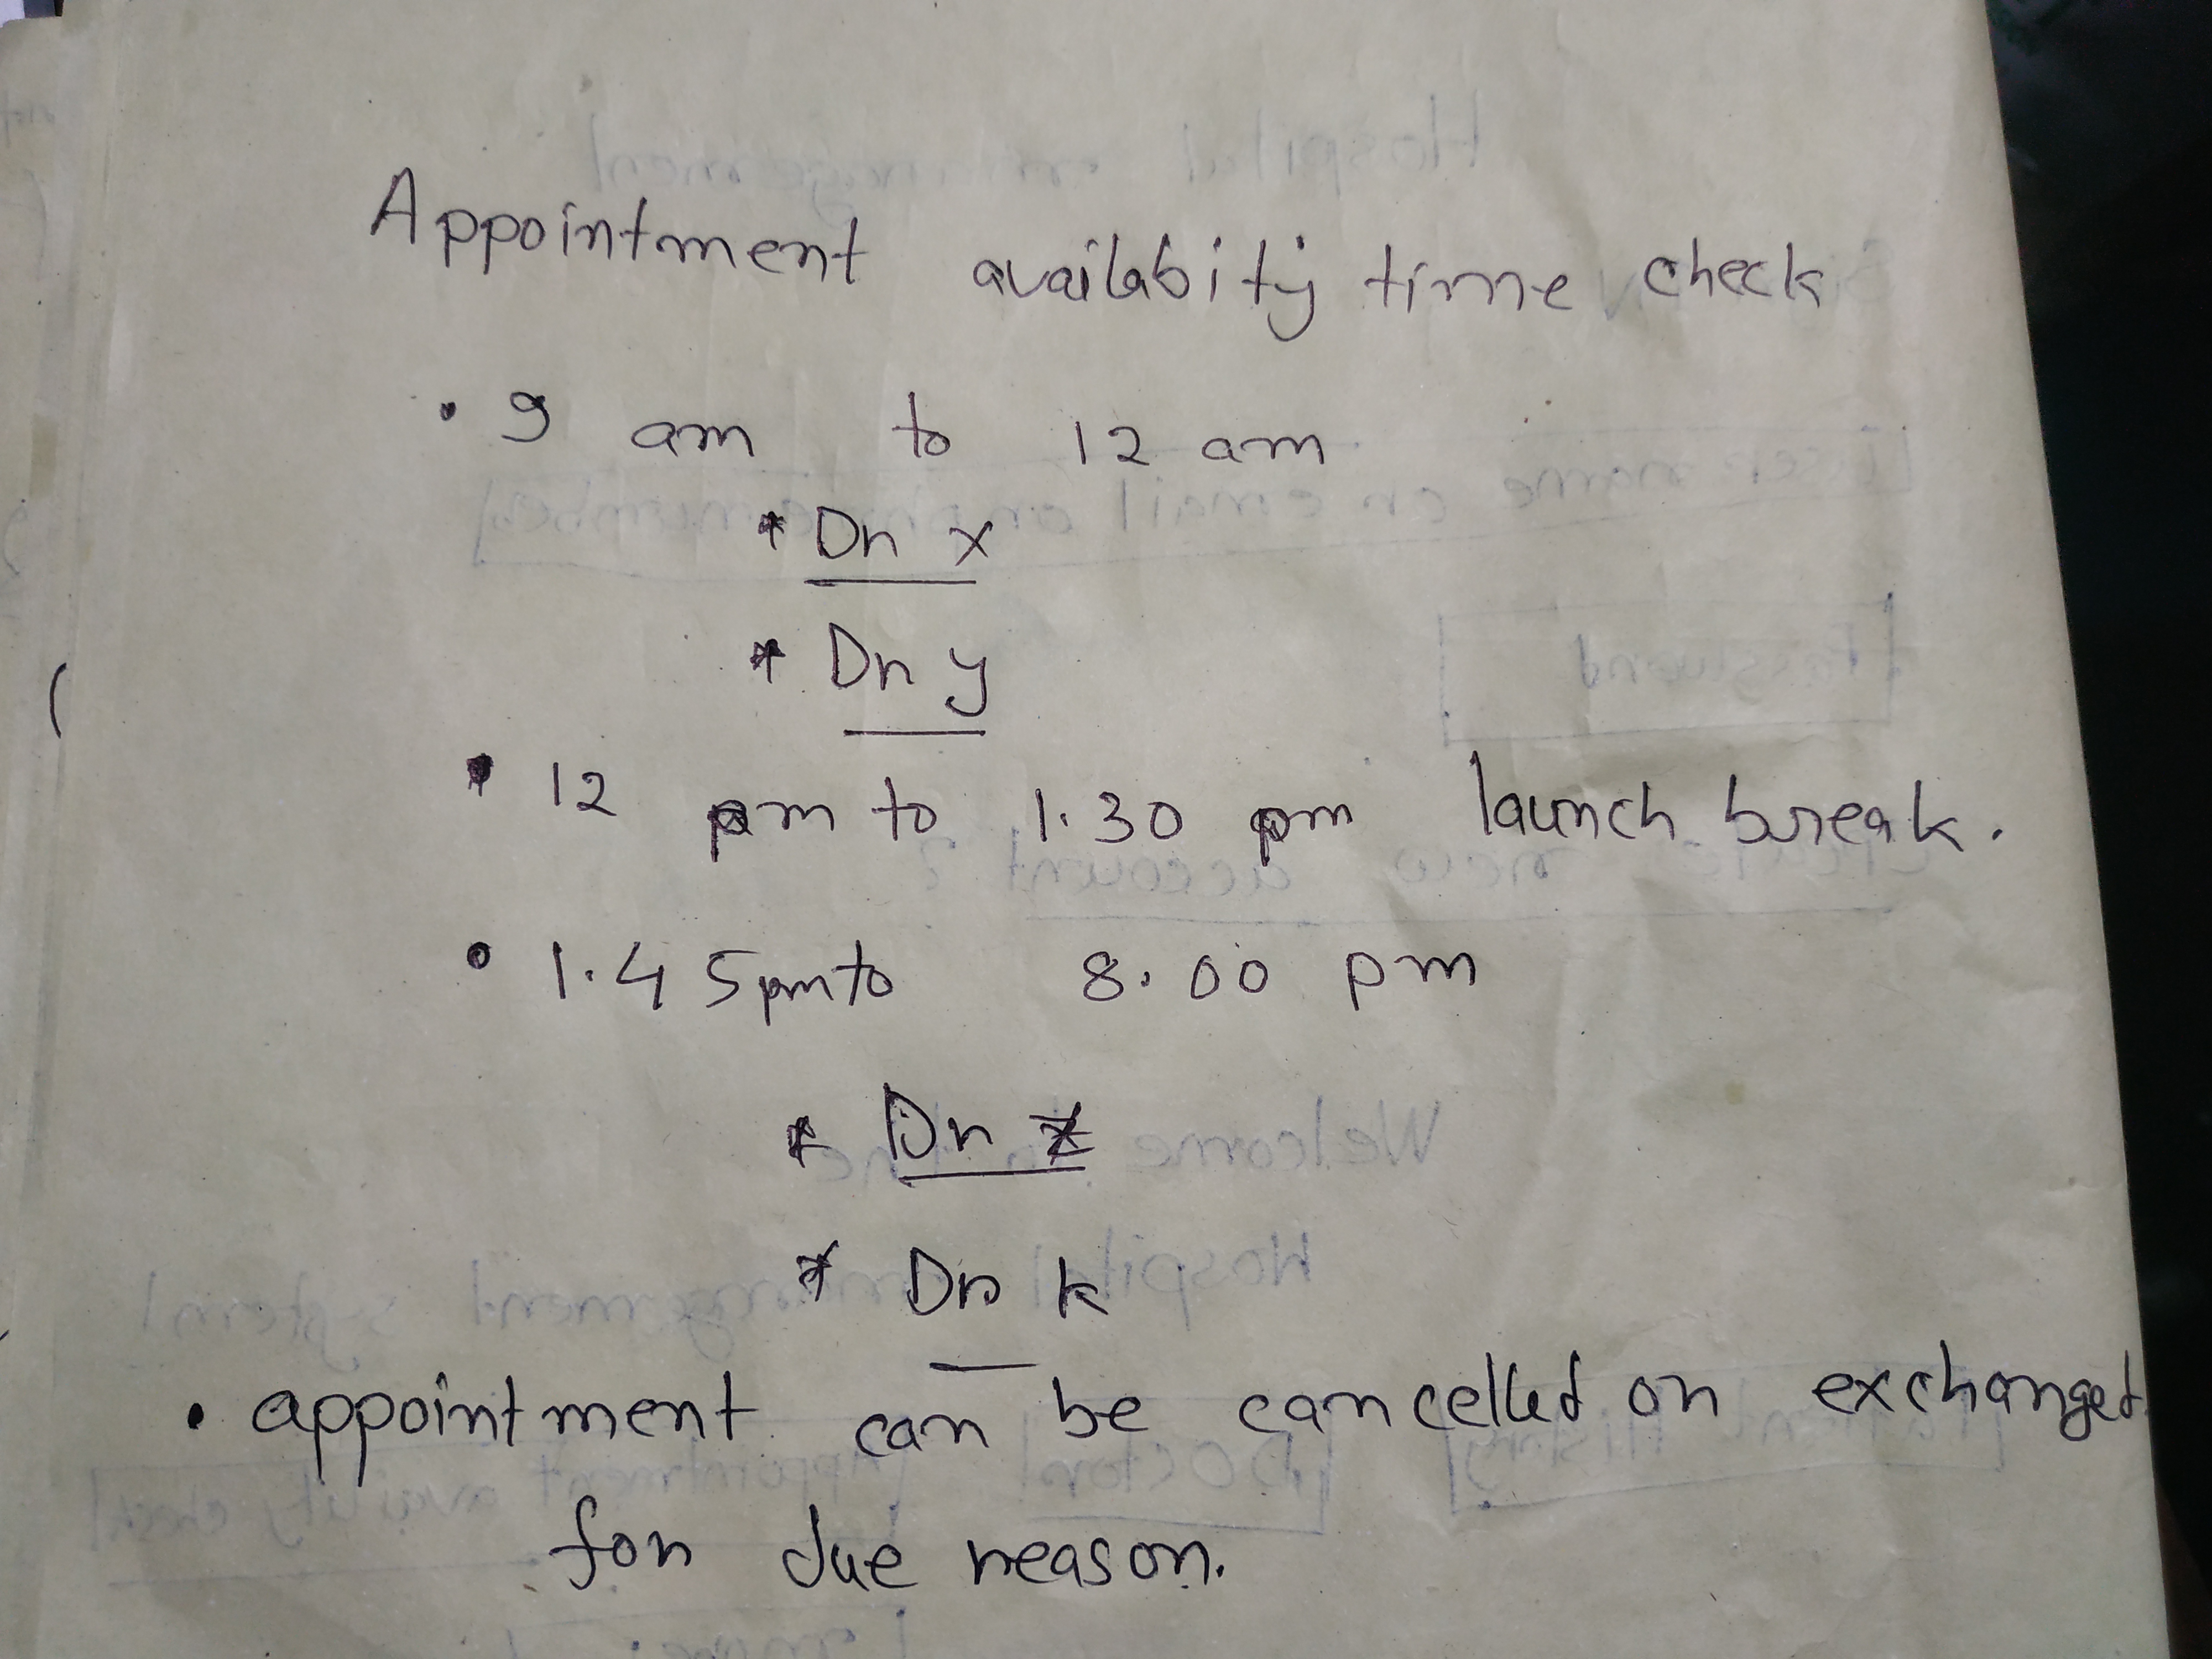 Appointment availabity time check
• 9 am to 12 am
* Dr x
* Dr y
• 12 pm to 1.30 pm launch break.
• 1.45 pm to 8.00 pm
* Dr z
* Dr k
• appointment can be cancelled or exchanged
for due reason.